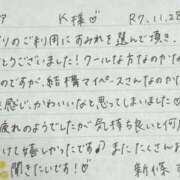 K様♡ R7.11.28
りのご利用にすみれを選んで頂き、
とうございました!クールな方なのかな
のですが、結構マイペースさんなのかな
感じ、かわいいなと思してしまいました
疲れのようでしたが気持ち良いと何
けて嬉しかったです♪またたくさん
聞きたいです!♡
新條